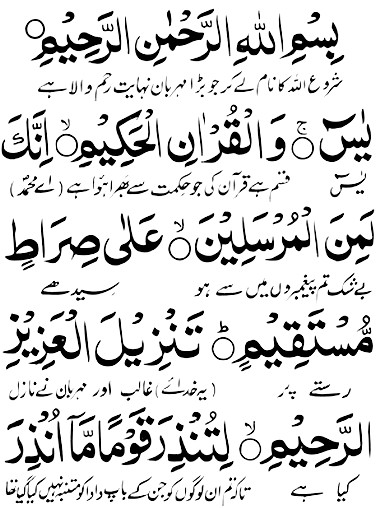 بِسْمِ اللّٰهِ الرَّحْمٰنِ الرَّحِيْمِ ○
شروع اللہ کا نام لے کر جو بڑا مہربان نہایت رحم والا ہے
يٰسٓ ○ۚ وَالْقُرْاٰنِ الْحَكِيْمِ ○ۙ اِنَّكَ
یٰسٓ قسم ہے قرآن کی جو حکمت سے بھرا ہوا ہے (اے محمدؐ)
لَمِنَ الْمُرْسَلِيْنَ ○ۙ عَلٰى صِرَاطٍ
بے شک تم پیغمبروں میں سے ہو سیدھے
مُّسْتَقِيْمٍ ○ؕ تَنْزِيْلَ الْعَزِيْزِ
رستے پر (یہ خدائے) غالب اور مہربان نے نازل
الرَّحِيْمِ ○ۙ لِتُنْذِرَ قَوْمًا مَّاۤ اُنْذِرَ
کیا ہے تاکہ تم ان لوگوں کو جن کے باپ دادا کو متنبہ نہیں کیا گیا تھا